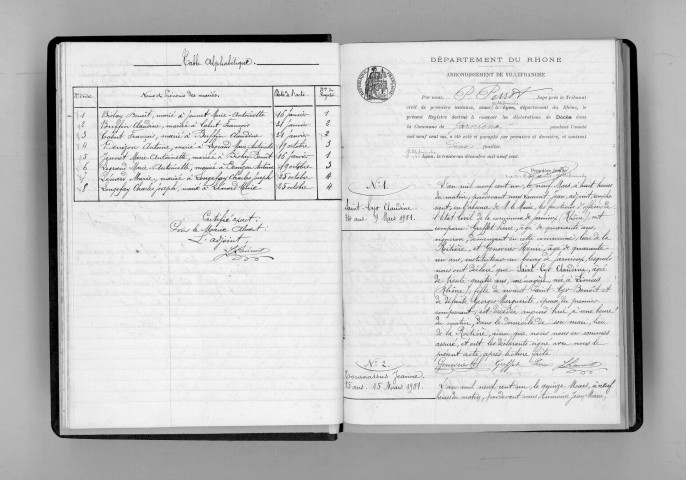 Table Alphabétique
Noms et Prénoms des mariés
1 Berlay Benoit, marié à Jaunet Marie Antoinette 16 janvier 1
2 Buffin Claudine, mariée à Lahut François 21 janvier 2
3 Lahut François, marié à Buffin Claudine 21 janvier 2
Antoine, marié à Marie Antoinette 19 octobre 3
5 Jaunet Marie Antoinette, mariée à Berlay Benoit 16 janvier 1
6 Marie Antoinette, mariée à Antoine 19 octobre 3
7 Lénard Marie, mariée à Charles Joseph 25 octobre 4
8 Charles Joseph, marié à Lénard Marie 25 octobre 4
Certifié exact:
Pour le Maire absent
L'adjoint
DÉPARTEMENT DU RHONE
ARRONDISSEMENT DE VILLEFRANCHE
Par nous, P. Perrot Juge près le Tribunal
civil de première instance, séant à Lyon, département du Rhône, le
présent Registre destiné à recevoir les déclarations de Décès dans
la Commune de Jarnioux pendant l'année
mil neuf cent un, a été coté et paraphé par première et dernière, et contient
feuillets
Lyon, le trente-un décembre mil neuf cent.
Premier feuillet
N° 1.
Saint-Cyr Claudine
34 ans. 9 Mars 1901.
L'an mil neuf cent un, le neuf Mars, à huit heures
du matin, pardevant nous Jean, adjoint,
en l'absence de M. le Maire, les fonctions d'officier de
l'état civil de la commune de Jarnioux (Rhône), ont
comparu Griffet Pierre, âgé de quarante ans,
vigneron, demeurant en cette commune, lieu de la
Rotière, et Genevois Henri, âgé de quarante
un ans, instituteur au bourg de Jarnioux, lesquels
nous ont déclaré que Saint-Cyr Claudine, âgée
de trente quatre ans, ménagère, née à
(Rhône), fille de Saint-Cyr Benoît et
de défunte Georges Marguerite, épouse du premier
comparant, est décédée aujourd'hui à une heure
du matin, dans le domicile de son mari, lieu
de la Rotière, ainsi que nous nous en sommes
assuré, et ont les déclarants signé avec nous le
présent acte, après lecture faite
Genevois H. Griffet Pierre
N° 2.
Jeanne.
ans. 15 Mars 1901.
L'an mil neuf cent un, le quinze Mars, à neuf
heures du matin, pardevant nous Jean Marie,